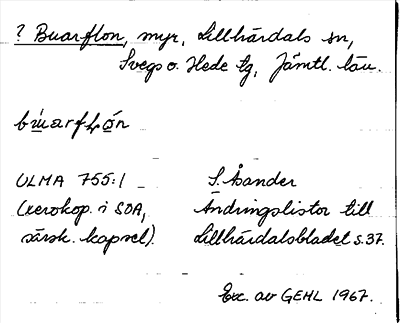 ? Buarflon, myr, Lillhärdals sn,
Svegs o. Hede tg, Jämtl. län.
ULMA 755:1 S. Åsander
(xerokop. i SOA, Ändringslistor till
särsk. kapsel). Lillhärdalsbladet s. 37.
Exc. av GEHL 1967.